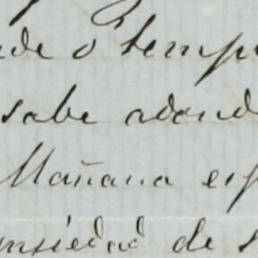 de o temp
sabe adond
Mañana esp
nsiedad de s